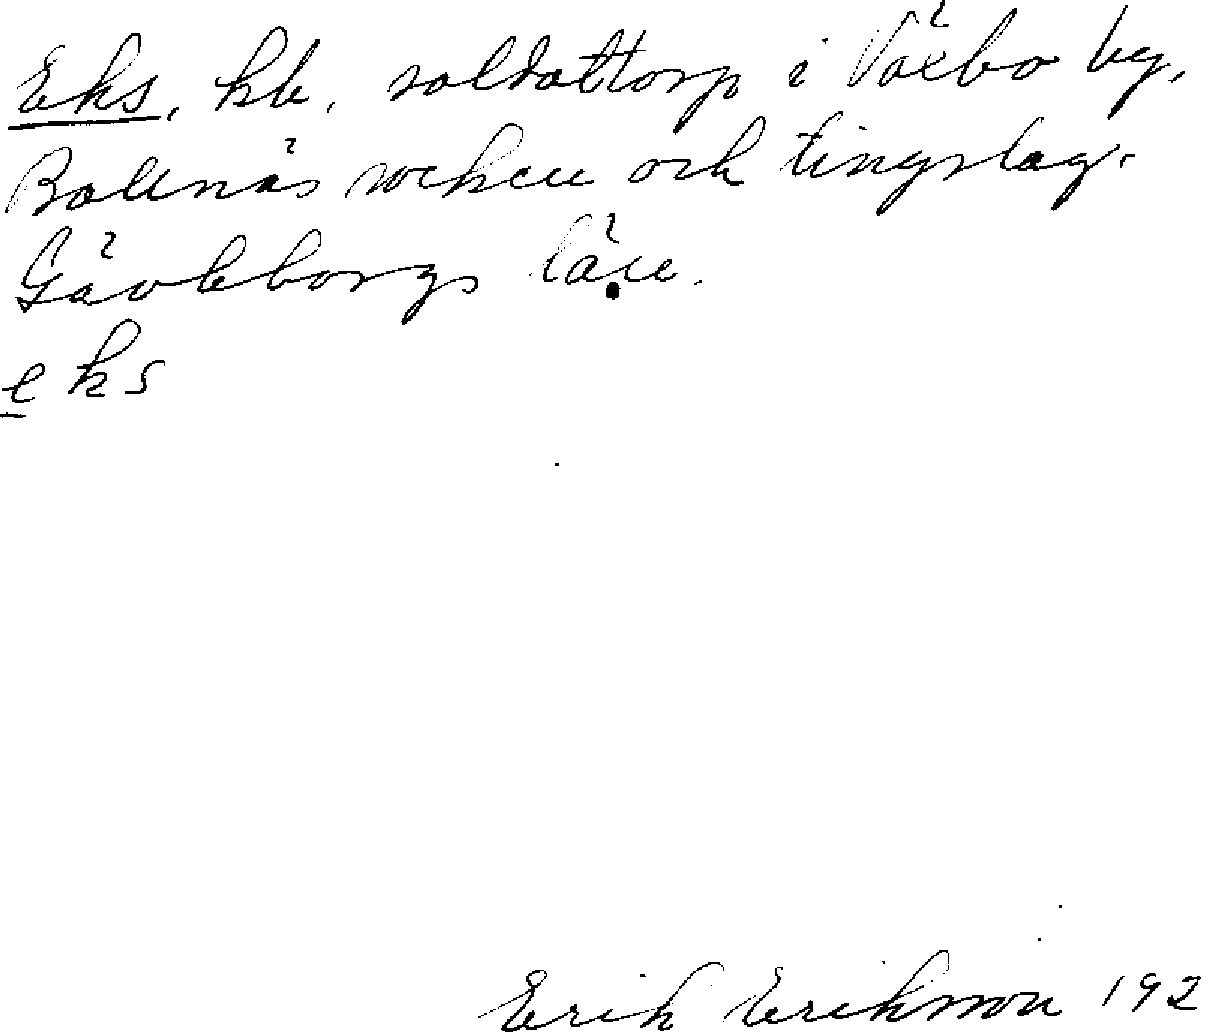 Eks, kb, soldattorp i Växbo by,
Bollnäs socken och tingslag.
Gävleborgs län.
eks
Erik Erikson 192